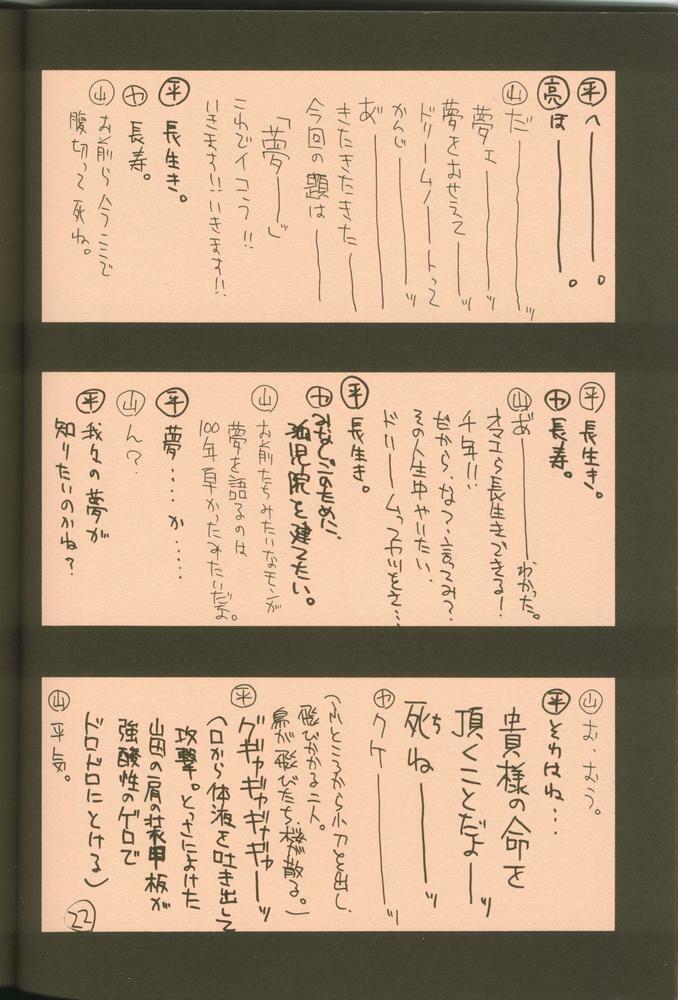 ㊥へ――――。
亮は――――。
山だ――――ッ
夢ェ――――ッ
夢をおせえて――ッ
ドリームノートって
かんじ――――ッ
あ゛――――
きたきたきた――
今回の題は――
「夢――」
これでイコう!!
いきます!! いきます!!
平 長生き。
ヤ 長寿。
山 お前ら今ここで
腹切って死ね。
平 長生き。
ヤ 長寿。
山 あ゛――――わかった。
オマエら長生きできる!
千年!!
だから、な?、言ってみ?
その人生中やいたい、
ドリームってヤツをさ…
平 長生き。
ヤ みなしごのために、
孤児院を建てたい。
山 お前たちみたいなモンが
夢を語るのは
100年早かったみたいだよ。
平 夢‥‥か‥‥‥
山 ん?
平 我々の夢が
知りたいのかね?
山 お、おう。
平 それはね…
貴様の命を
頂くことだよ――ッ
死ちね――――ッ
ヤ クケ――――ッ
(ふところから小刀を出し、
飛びかかる二人。
鳥が飛びたち、桜が散る。)
平 グギャギャギャギャ――ッ
(口から体液を吐き出して
攻撃。とっさによけた
山田の肩の装甲板が
強酸性のゲロで
ドロドロにとける)
山 平気。
22